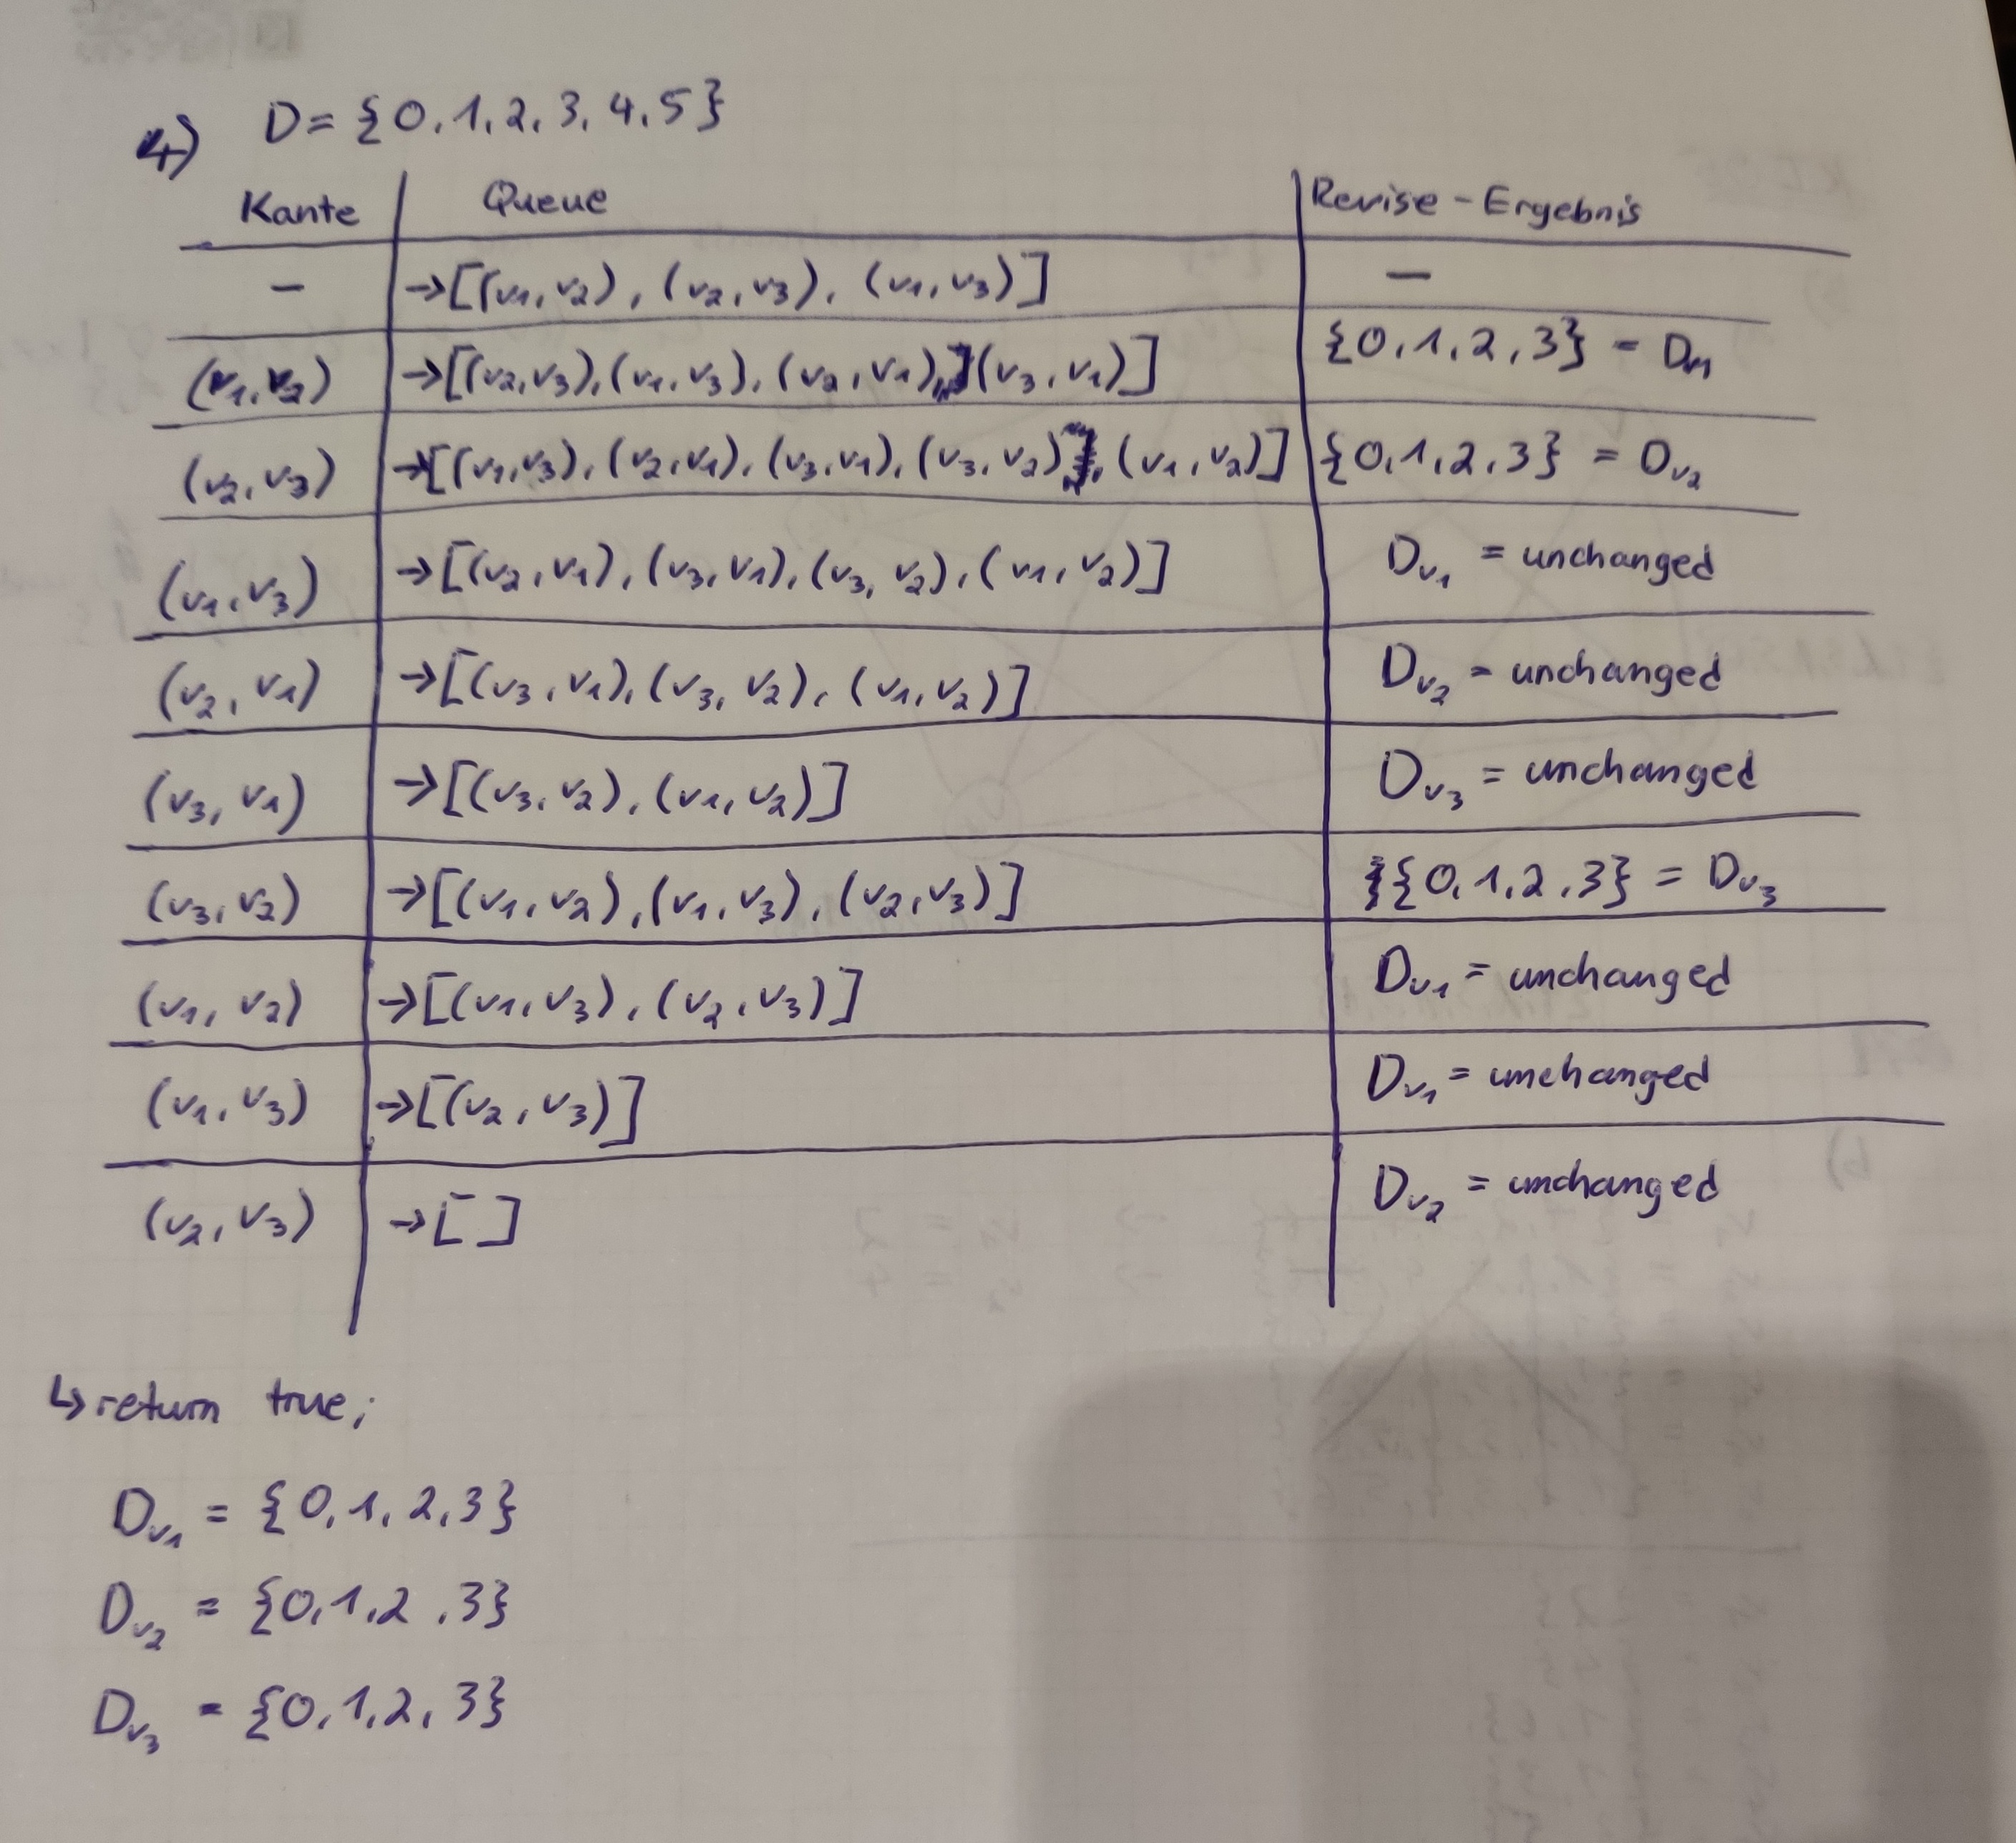 4) D = {0, 1, 2, 3, 4, 5}
Kante Queue Revise-Ergebnis
– →[(v1, v2), (v2, v3), (v1, v3)] –
(v1, v2) →[(v2, v3), (v1, v3), (v2, v1), (v3, v1)] {0, 1, 2, 3} = Dv1
(v2, v3) →[(v1, v3), (v2, v1), (v3, v1), (v3, v2), (v1, v2)] {0, 1, 2, 3} = Dv2
(v1, v3) →[(v2, v1), (v3, v1), (v3, v2), (v1, v2)] Dv1 = unchanged
(v2, v1) →[(v3, v1), (v3, v2), (v1, v2)] Dv2 = unchanged
(v3, v1) →[(v3, v2), (v1, v2)] Dv3 = unchanged
(v3, v2) →[(v1, v2), (v1, v3), (v2, v3)] {0, 1, 2, 3} = Dv3
(v1, v2) →[(v1, v3), (v2, v3)] Dv1 = unchanged
(v1, v3) →[(v2, v3)] Dv1 = unchanged
(v2, v3) →[ ] Dv2 = unchanged
↳ return true;
Dv1 = {0, 1, 2, 3}
Dv2 = {0, 1, 2, 3}
Dv3 = {0, 1, 2, 3}